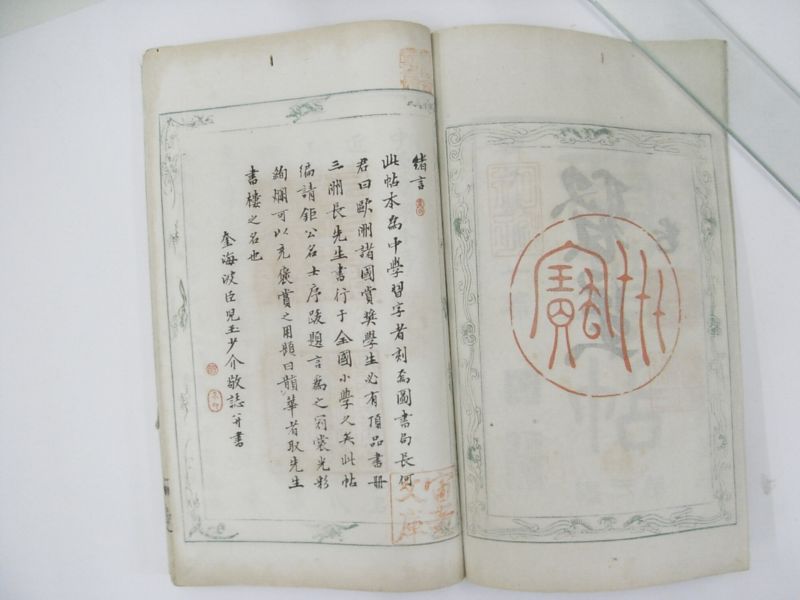 緒言
此帖本為中學習字者刻為圖書局長何
君曰歐洲諸國賞獎學生必有頂品書冊
三洲長先生書行于全國小學久矣此帖
編請鉅公名士序跋題言為之冠裳光彩
絢爛可以充褒賞之用題曰韻華者取先生
書樓之名也
奎海波臣児玉少介敬誌并書